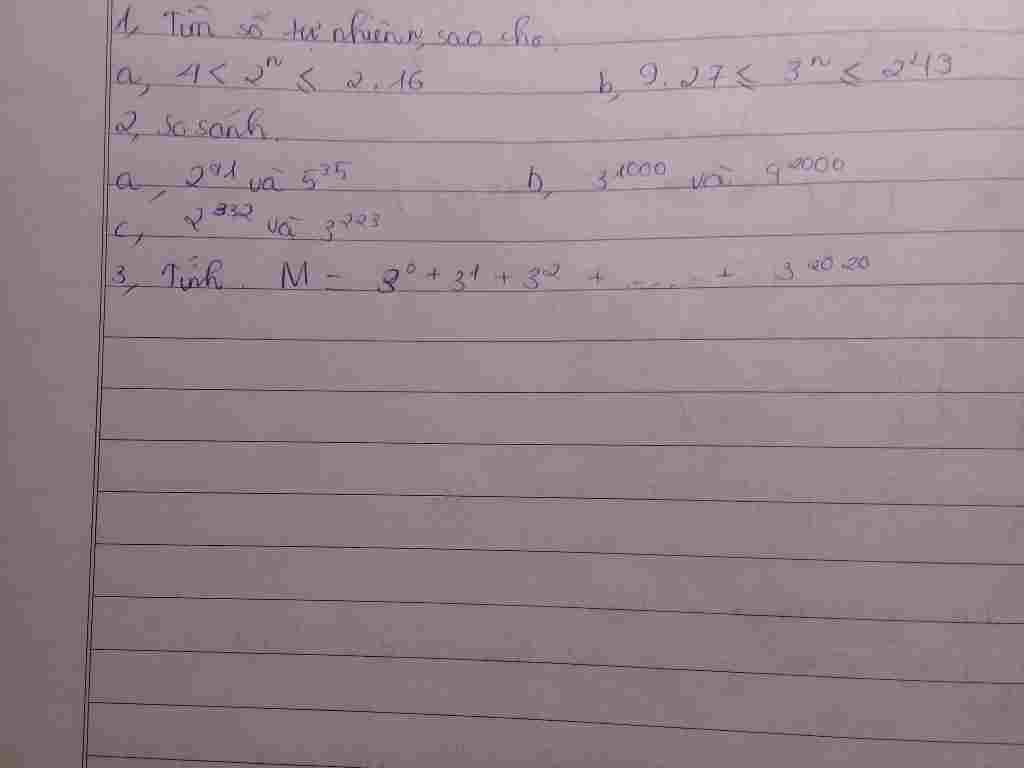 1, Tìm số tự nhiên n sao cho
a, 4 < 2ⁿ ≤ 2.16 b, 9.27 ≤ 3ⁿ ≤ 243
2, So sánh.
a, 2⁹¹ và 5³⁵ b, 3⁴⁰⁰⁰ và 9²⁰⁰⁰
c, 2³³² và 3²²³
3, Tính. M = 3⁰ + 3¹ + 3² + ..... + 3²⁰²⁰